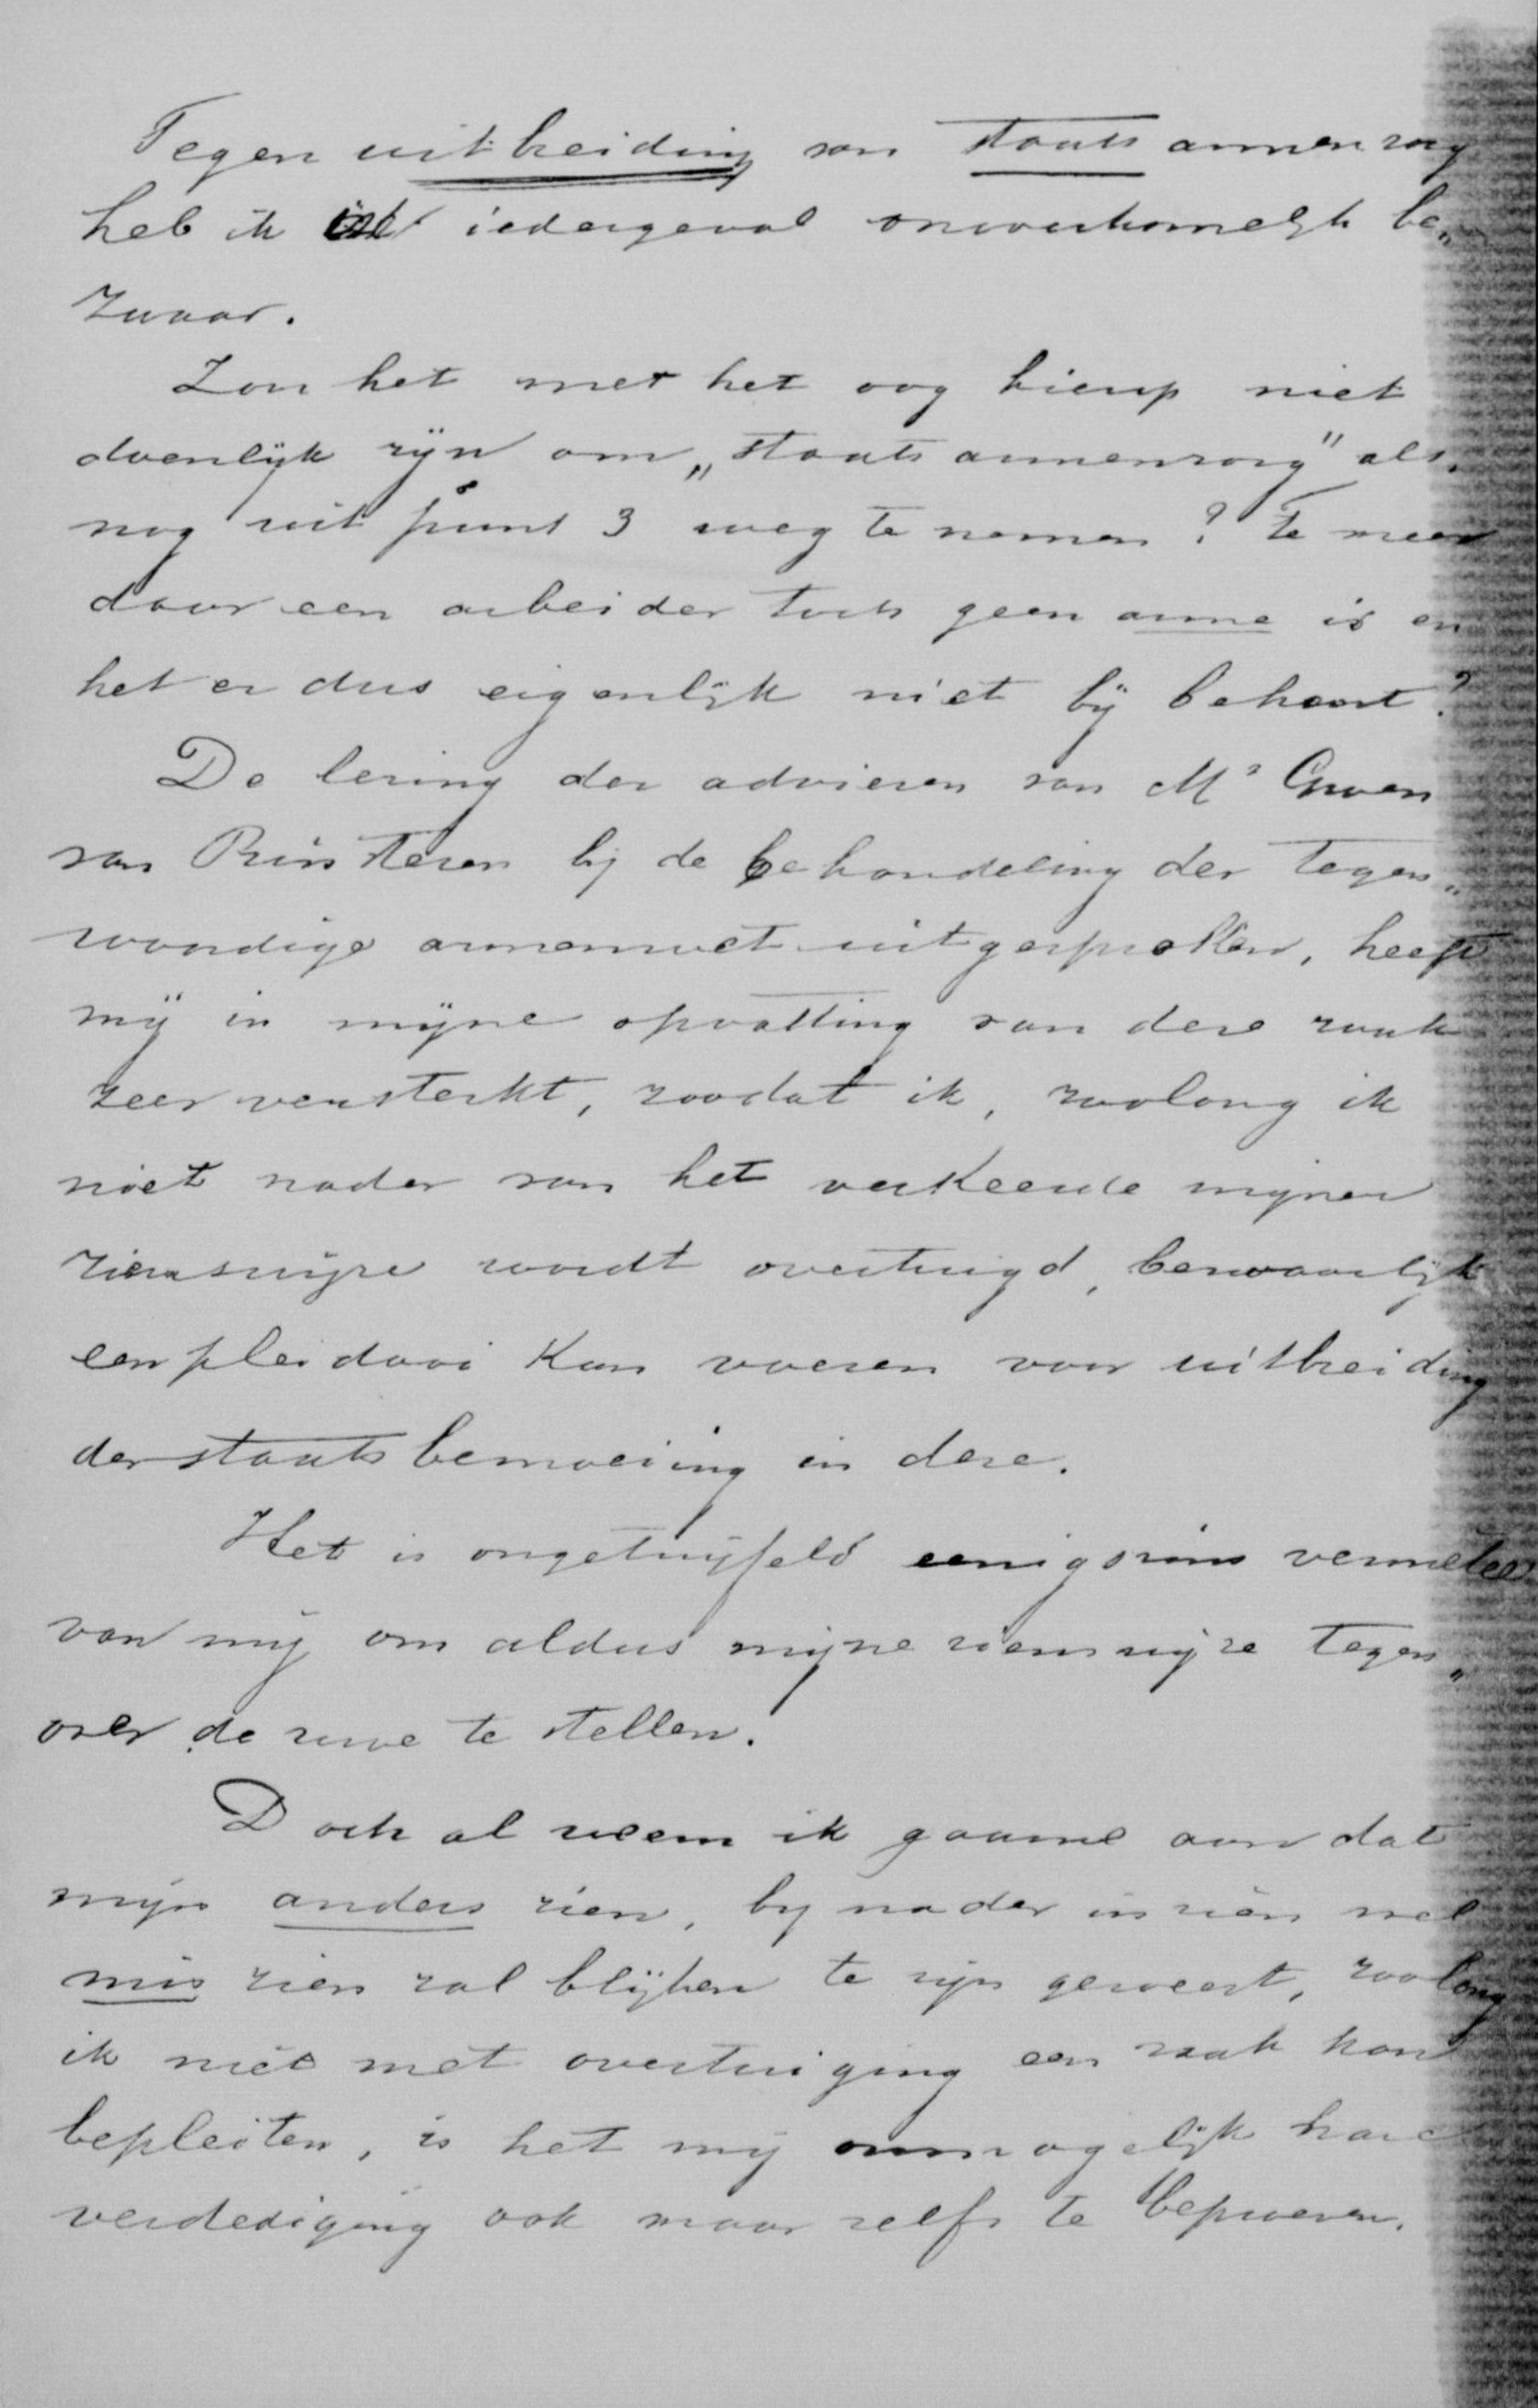 Tegen uitbreiding van staats armenzorg
heb ik in iedergeval onoverkomelijk be„
zwaar.
Zou het met het oog hierop niet
doenlijk zijn om „staatsarmenzorg" als„
nog uit punt 3 weg te nemen? Te meer
daar een arbeider toch geen arme is en
het er dus eigenlijk niet bij behoort?
De lezing der adviezen van Mr Groen
van Prinsterer bij de behandeling der tegen„
woordige armenwet uitgesproken, heeft
mij in mijne opvatting van deze zaak
zeer versterkt, zoodat ik, zoolang ik
niet nader van het verkeerde mijner
zienswijze wordt overtuigd, bezwaarlijk
een pleidooi kan voeren voor uitbreiding
der staatsbemoeiing in deze.
Het is ongetwijfeld eenigszins vermetel
van mij om aldus mijne zienswijze tegen„
over de uwe te stellen.
Doch al neem ik gaarne aan dat
mijn anders zien, bij nader inzien wel
mis zien zal blijken te zijn geweest, zoolang
ik niet met overtuiging een zaak kan
bepleiten, is het mij onmogelijk hare
verdediging ook maar zelfs te beproeven.